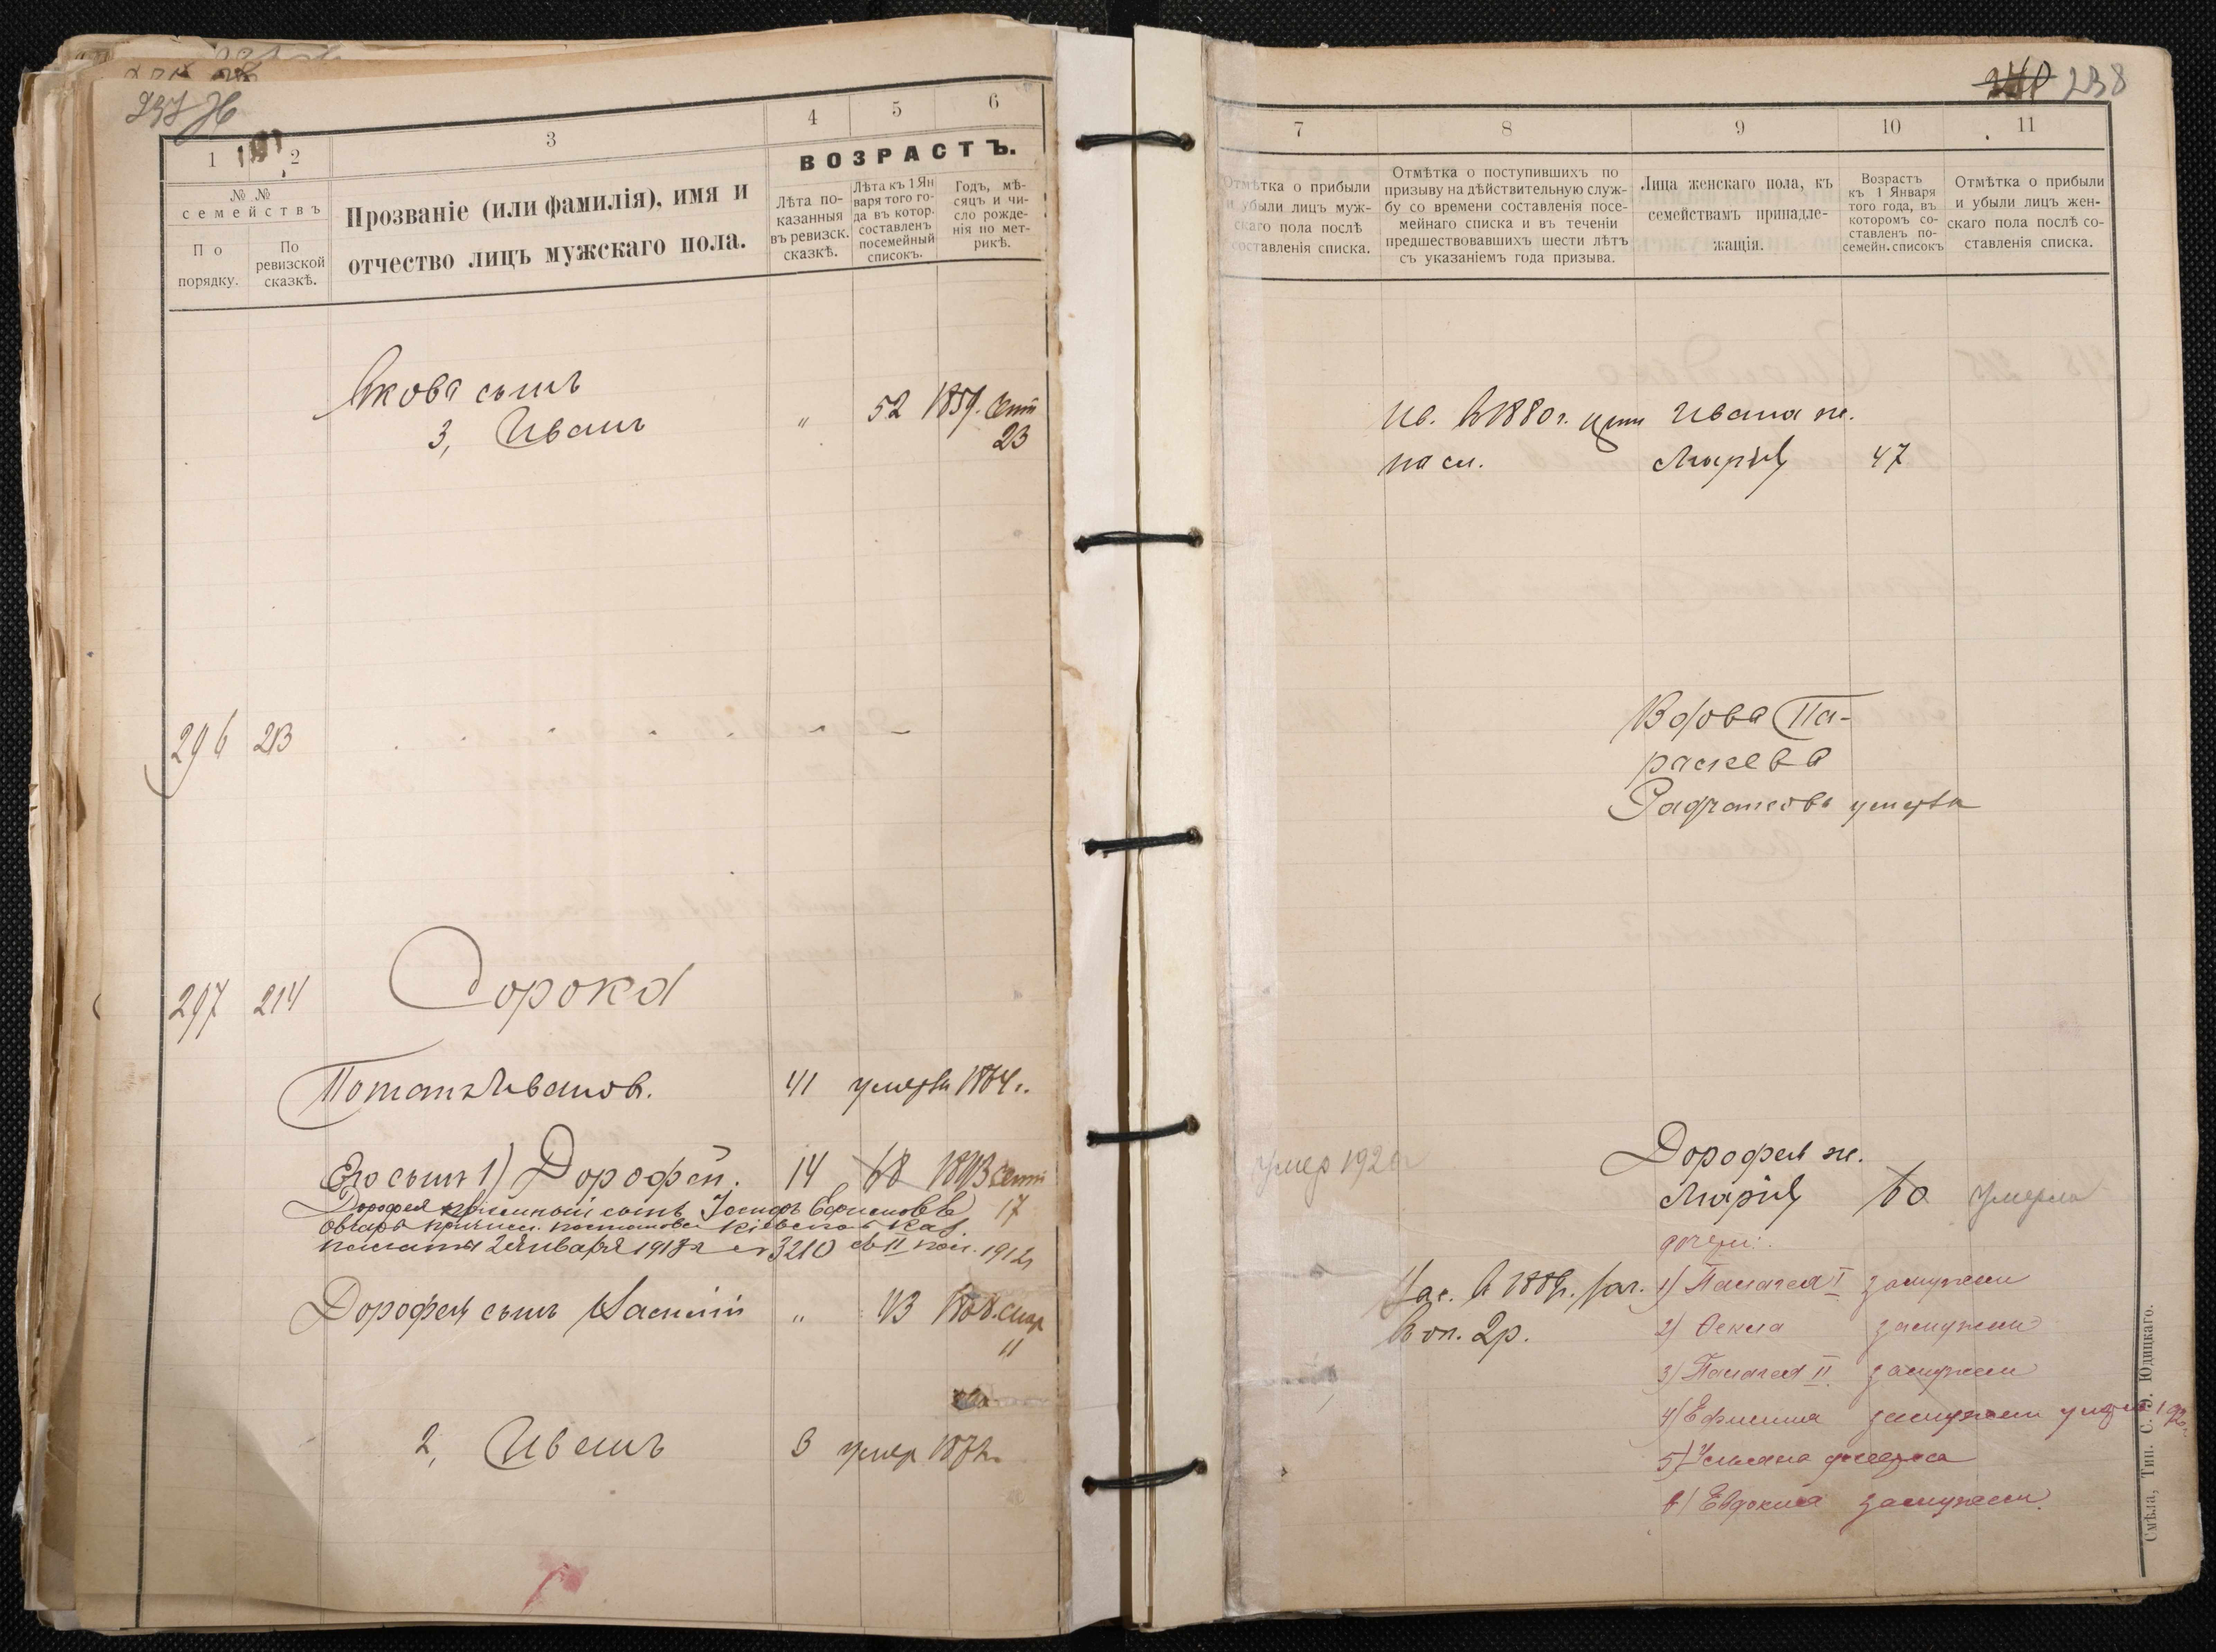 1
2
3
4
5
6
№ №
семействъ
По
порядку.
По
ревизской
сказкѣ.
Прозваніе (или фамилія), имя и
отчество лицъ мужскаго пола.
ВОЗРАСТЪ.
Лѣта по-
казанныя
въ ревизск.
сказкѣ.
Лѣта къ 1 Ян
варя того го-
да въ котор.
составленъ
посемейный
списокъ.
Годъ, мѣ-
сяцъ и чи-
сло рожде-
нія по мет-
рикѣ.
Якова сынъ
3, Иванъ " 52 1859. Сент
23
296 213
297 214 Сорока
Потапъ Иванов. 41 умеръ 1864 г.
Его сынъ 1) Дорофей. 14 68 1843 Сент
17
Дорофея пріемный сынъ Іосифъ Ефимовъ
Овчаръ причисл. постановл Кіевской Каз
палаты 2 Января 1913 г № 3210 съ II пол. 1912
Дорофея сынъ Василій " 43 1868. Мар
11
2, Иванъ 3 умер 1872 г.
240 238
7
8
9
10
11
Отмѣтка о прибыли
и убыли лицъ муж-
скаго пола послѣ
составленія списка.
Отмѣтка о поступившихъ по
призыву на дѣйствительную служ-
бу со времени составленія посе-
мейнаго списка и въ теченіи
предшествовавшихъ шести лѣтъ
съ указаніемъ года призыва.
Лица женскаго пола, къ
семействамъ принадле-
жащія.
Возрастъ
къ 1 Января
того года, въ
которомъ со-
ставленъ по-
семейн. списокъ
Отмѣтка о прибыли
и убыли лицъ жен-
скаго пола послѣ со-
ставленія списка.
Ив. въ 1880 г. Ивана ж.
на сл. Марія 47
Вдова Па-
раскева
умерла
умер 192
Дорофея ж.
Марія 60 умерла
дочери:
1) Палагея I замужем
Вас. въ 1889 г.
в оп. 2 р.
2) Фекла замужем
3) Палагея II замужем
4) Ефимия замужем
5) Ульяна
6) Евдокия замужем
Смѣла, Тип. С. Э. Юдицкаго.